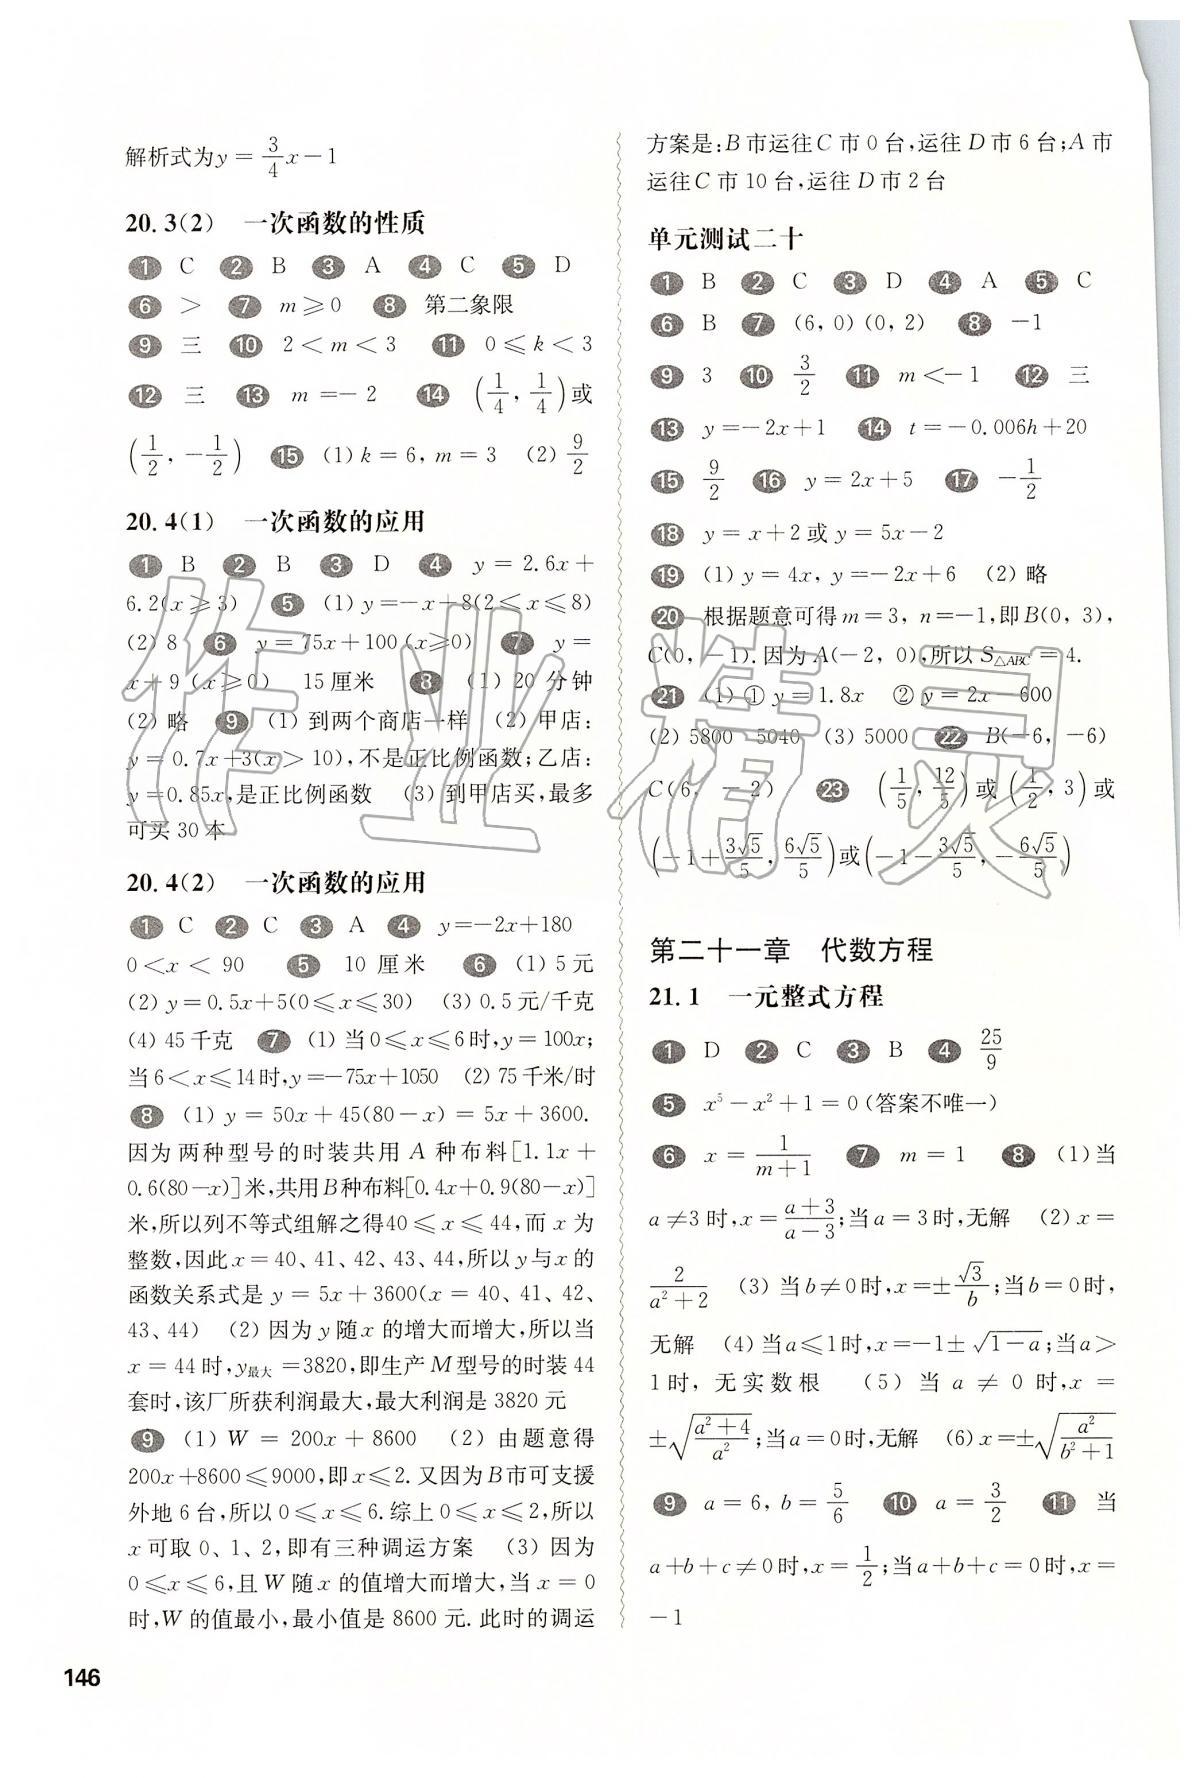 解析式为y = 3/4 x - 1
20. 3(2) 一次函数的性质
1 C 2 B 3 A 4 C 5 D
6 > 7 m ≥ 0 8 第二象限
9 三 10 2 < m < 3 11 0 ≤ k < 3
12 三 13 m = - 2 14 (1/4, 1/4)或
(1/2, -1/2) 15 (1) k = 6, m = 3 (2) 9/2
20. 4(1) 一次函数的应用
1 B 2 B 3 D 4 y = 2.6x +
6.2(x ≥ 3) 5 (1) y=-x+8(2≤x≤8)
(2) 8 6 y = 75x+100 (x≥0) 7 y =
x+9 (x ≥ 0) 15 厘米 8 (1) 20 分钟
(2) 略 9 (1) 到两个商店一样 (2) 甲店:
y = 0.7x+3(x > 10),不是正比例函数;乙店:
y=0.85x,是正比例函数 (3) 到甲店买,最多
可买 30 本
20. 4(2) 一次函数的应用
1 C 2 C 3 A 4 y=-2x+180
0<x < 90 5 10 厘米 6 (1) 5 元
(2) y=0.5x+5(0≤x≤30) (3) 0.5 元/千克
(4) 45 千克 7 (1) 当0≤x≤6时,y= 100x;
当6<x≤14时,y=-75x+1050 (2) 75 千米/时
8 (1) y = 50x + 45(80-x) = 5x + 3600.
因为两种型号的时装共用 A 种布料[1.1x +
0.6(80-x)]米,共用B种布料[0.4x+0.9(80-x)]
米,所以列不等式组解之得40 ≤ x ≤ 44,而 x 为
整数,因此 x = 40、41、42、43、44,所以 y 与 x 的
函数关系式是 y = 5x + 3600(x = 40、41、42、
43、44) (2) 因为 y 随 x 的增大而增大,所以当
x = 44 时,y最大 =3820,即生产 M 型号的时装 44
套时,该厂所获利润最大,最大利润是 3820 元
9 (1) W = 200x + 8600 (2) 由题意得
200x+8600≤9000,即 x≤2. 又因为 B 市可支援
外地 6 台,所以 0≤x≤6. 综上 0≤x≤2,所以
x 可取 0、1、2,即有三种调运方案 (3) 因为
0≤x≤6,且 W 随 x 的值增大而增大,当 x = 0
时,W 的值最小,最小值是 8600 元. 此时的调运
146
方案是:B 市运往 C 市 0 台,运往 D 市 6 台;A 市
运往C 市 10 台,运往 D 市 2 台
单元测试二十
1 B 2 C 3 D 4 A 5 C
6 B 7 (6, 0) (0, 2) 8 -1
9 3 10 3/2 11 m <- 1 12 三
13 y=-2x+1 14 t=-0.006h+20
15 9/2 16 y = 2x+5 17 -1/2
18 y = x+2 或 y = 5x-2
19 (1) y = 4x, y=-2x+6 (2) 略
20 根据题意可得 m = 3, n=-1,即B(0, 3),
C(0, -1). 因为 A(-2, 0),所以 S△ABC = 4.
21 (1) ① y = 1.8x ② y = 2x-600
(2) 5800 5040 (3) 5000 22 B(-6, -6)
C(6, -2) 23 (1/5, 12/5)或(1/2, 3)或
(-1+3√5/5, 6√5/5)或(-1-3√5/5, -6√5/5)
第二十一章 代数方程
21. 1 一元整式方程
1 D 2 C 3 B 4 25/9
5 x⁵-x²+1=0 (答案不唯一)
6 x = 1/(m+1) 7 m = 1 8 (1)当
a≠3 时,x=(a+3)/(a-3);当a=3时,无解 (2) x =
2/(a²+2) (3) 当b≠0时,x=±√3/b;当b=0时,
无解 (4) 当a≤1时,x=-1±√(1-a);当a>
1时, 无实数根 (5) 当 a ≠ 0 时,x =
±√((a²+4)/a²);当a=0时,无解 (6) x=±√(a²/(b²+1))
9 a = 6, b = 5/6 10 a = 3/2 11 当
a+b+c≠0时,x=1/2;当a+b+c=0时,x=
-1
作业精灵